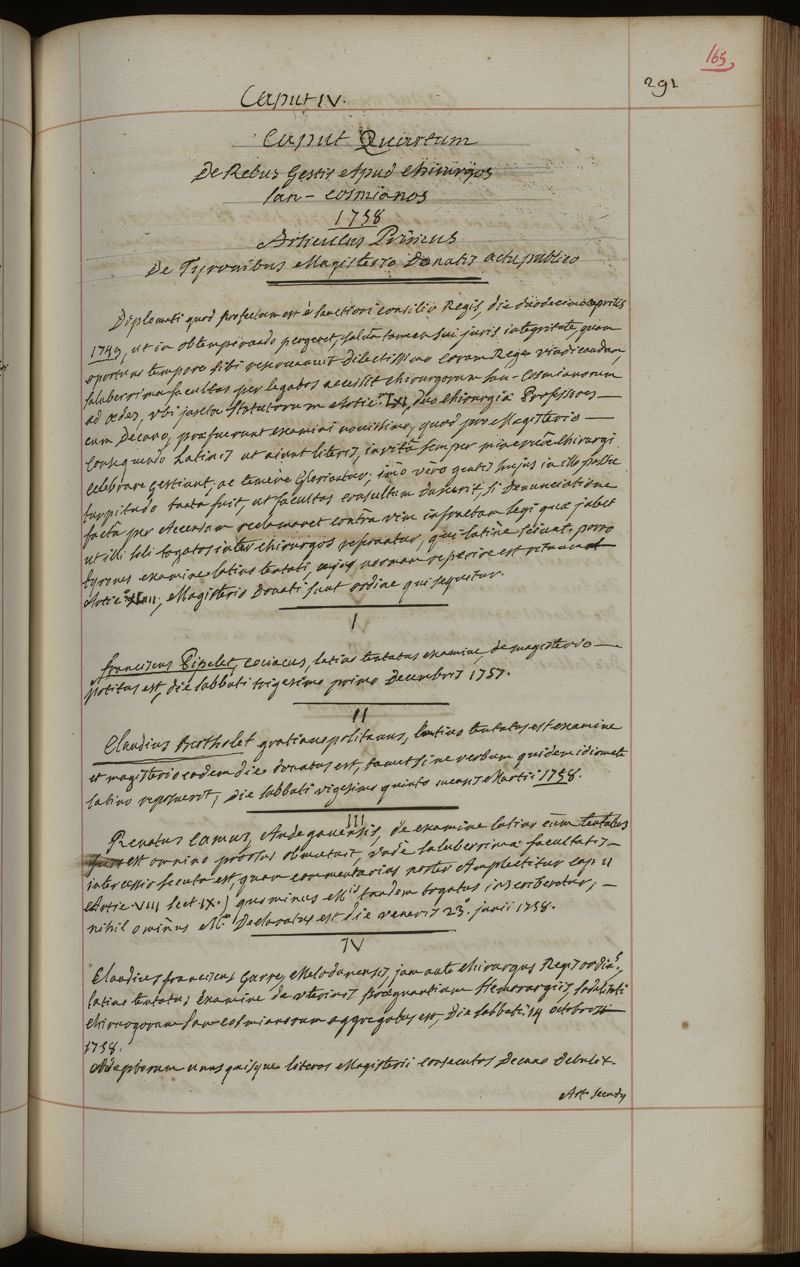 165
291
Caput IV.
Caput Quartum
De Rebus Gestis apud chirurgos
san-cosmianos
1758
Articulus Primus
De Tyronibus Magisterio Donatis actu publico
Diplomati quod profectum est è sanctiori consilio Regis, die duodecimo aprilis
1749, ut in obtemperando pergeret, salvâ tamen sui juris integritate, quam
oportuno tempore sibi dilectissimo coram Rege vindicandam,
saluberrima facultas per legatos accessit chirurgorum san-cosmianorum
ad ædes, ubi juxta statutorum Artic. LXI, duo chirurgiæ Professores
cum Decano, præfuerunt examini novissimo, quod pro Magisterio
consequendo Latinis ut aiunt literis, invitâ semper minervâ chirurgi
celebrare gestiunt, ac temere gloriantur; imò vero gentis hujus in illo
turpitudo tanta fuit, ut facultas consultum duxerit, si denunciatione
factâ per reclamaret contrà vim infractam legi quæ jubet
ut illi soli togatos inter chirurgos referantur, qui latinè sciunt. porro
tyrones examine latino tentati, cujus normam reperire est
Artic., Magisterio Donati sunt ordine qui sequitur.
I
franciscus Pipelet, cociacus, latino tentatus examine, de magisterio
potitus est, die sabbati trigesimo primo Decembris 1757.
II
Claudius Bertholet gratianopolitanus, latino tentatus est examine
et magisterio eodem die donatus est, tametsi ne verbum quidem idiomate
latino reposuerit, die sabbati vigesimo quinto mensis Martii 1758.
III
Renatus Camus, Andegavensis, de examine latino cùm tentatus
est omnino prorsus obmutuit, undè saluberrimæ facultatis
intercessio secuta est, quam commentarius noster Amplectitur cap. II
Artic. VIII sect. IX.) quominus tandem togatus inscriberetur;
nihil ominùs Declaratus est die veneris 23. junii 1758.
IV
Claudius franciscus Garre, Melodunensis, jam ante chirurgus Regis
latino tentatus Examine de uterinis prægnantium Hemorragiis, sodalitati
chirurgorum san-cosmianorum aggregatus est, die sabbati 14 octobris
1758.
Adeptorum unusquisque literas Magisterii consecutus Decano debulit.
Art. secund